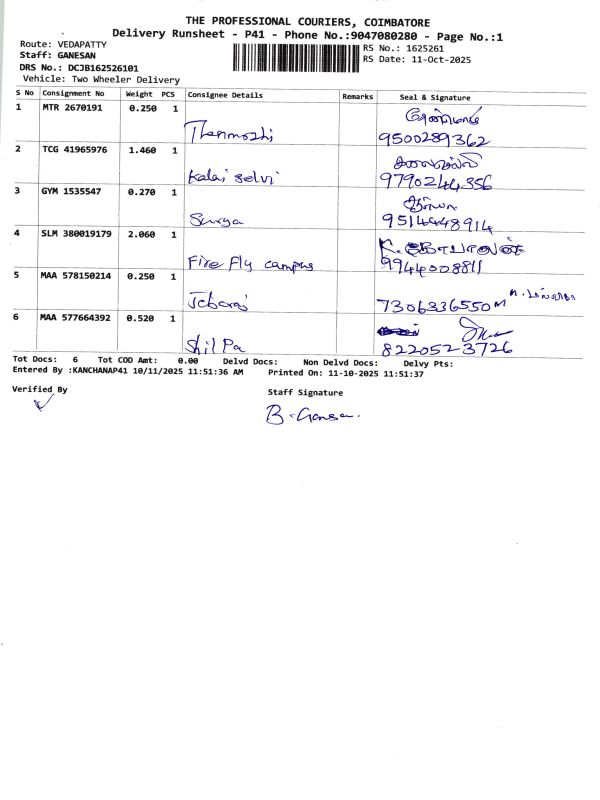 THE PROFESSIONAL COURIERS, COIMBATORE
Delivery Runsheet - P41 - Phone No.:9047080280 - Page No.:1
Route: VEDAPATTY
RS No.: 1625261
Staff: GANESAN
RS Date: 11-Oct-2025
DRS No.: DCJB162526101
Vehicle: Two Wheeler Delivery
S No Consignment No Weight PCS Consignee Details Remarks Seal & Signature
1 MTR 2670191 0.250 1
Thenmozhi 9500289362
2 TCG 41965976 1.460 1
Kalai selvi 9790244356
3 GYM 1535547 0.270 1
Surya 9514448914
4 SLM 380019179 2.060 1
Fire Fly campus 9944008811
5 MAA 578150214 0.250 1
Jebaraj 7306336550
6 MAA 577664392 0.520 1
Shil Pa 8220523726
Tot Docs: 6 Tot COD Amt: 0.00 Delvd Docs: Non Delvd Docs: Delvy Pts:
Entered By :KANCHANAP41 10/11/2025 11:51:36 AM Printed On: 11-10-2025 11:51:37
Verified By
Staff Signature
B. Ganesa.